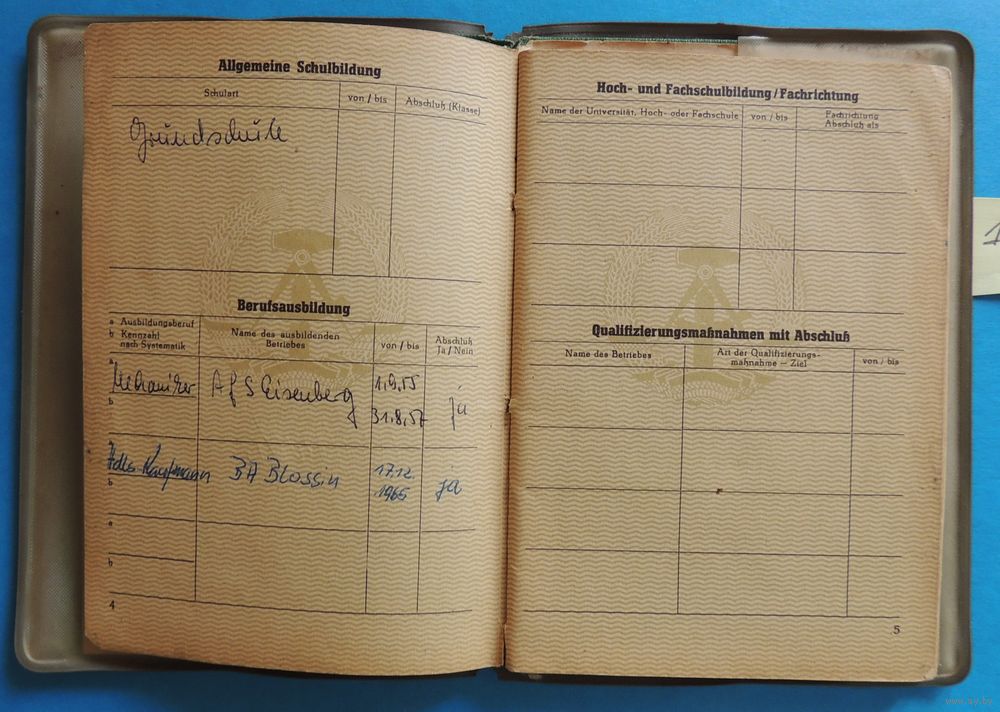 Allgemeine Schulbildung
Schulart
von / bis
Abschluß (Klasse)
Grundschule
Berufsausbildung
a Ausbildungsberuf
b Kennzahl
nach Systematik
Name des ausbildenden
Betriebes
von / bis
Abschluß
Ja / Nein
a
Mechaniker
A f S Eisenberg
1.9.55
31.8.57
ja
b
a
Hdls. Kaufmann
BA Blossin
17.12.
1965
ja
b
a
b
4
Hoch- und Fachschulbildung / Fachrichtung
Name der Universität, Hoch- oder Fachschule
von / bis
Fachrichtung
Abschluß als
Qualifizierungsmaßnahmen mit Abschluß
Name des Betriebes
Art der Qualifizierungs-
maßnahme – Ziel
von / bis
5
1
www.ay.by